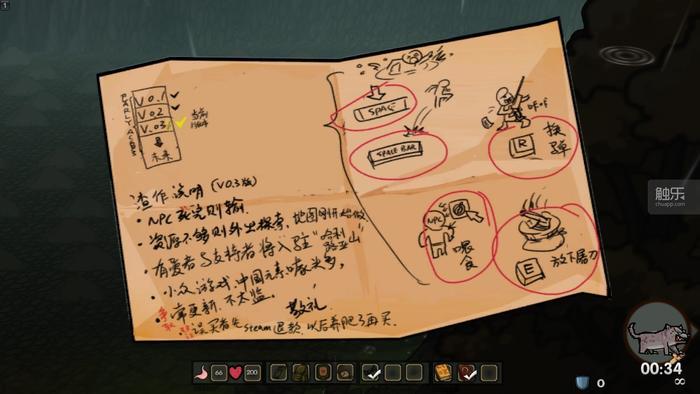 1
EARLY ACCESS
V 0.1
V 0.2
V.03
未来
操作说明 (V0.3版)
· NPC死完则输.
· 资源不够则外出探索, 地图刚开始做
· 有爱者与支持者将入驻"哈利路亚山"
· 小众游戏, 中国元素嚎米多,
· 常更新, 不太监.
敬礼
误买者先Steam退款, 以后养肥了再买.
SPAC
SPACE BAR
R
换弹
NPC
喂食
E
放下屠刀
触乐
chuapp.com
66
200
0
00:34
∞